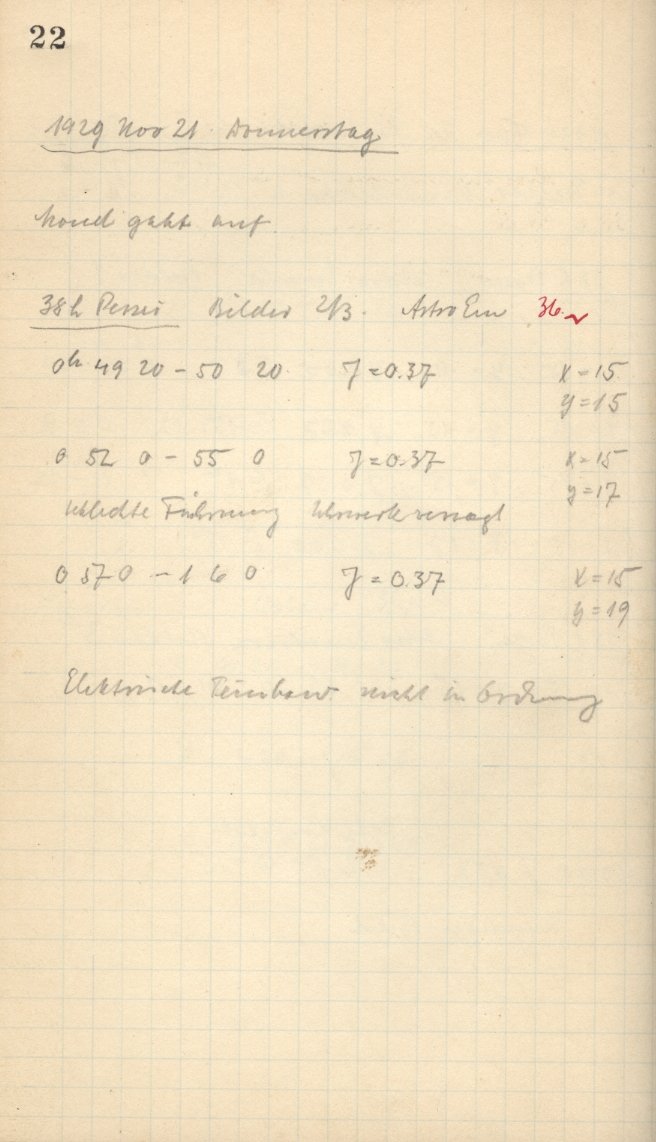 22
1929 Nov 21 Donnerstag
Mond geht auf.
38h Persei Bilder 2/3. Astro Em 36
0h 49 20 – 50 20 J = 0.37 x = 15
y = 15
0 52 0 – 55 0 J = 0.37 x = 15
y = 17
schlechte Führung Uhrwerk versagt
0 57 0 – 1 6 0 J = 0.37 x = 15
y = 19
Elektrische nicht in Ordnung